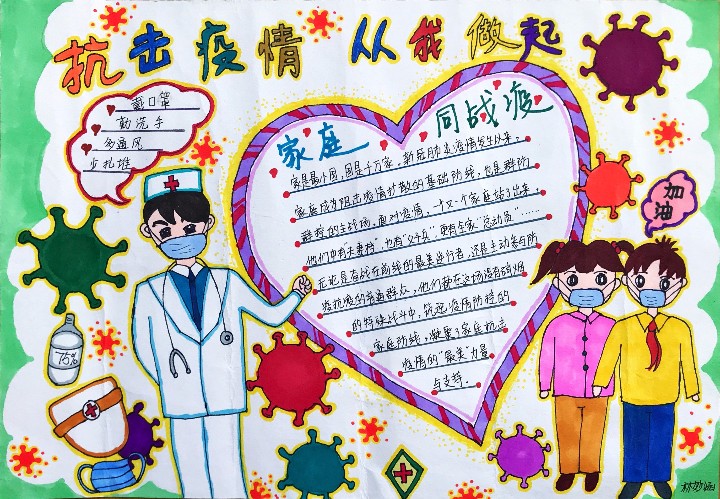 抗击疫情 从我做起
戴口罩
勤洗手
多通风
少扎堆
家庭 同战疫
家是最小国，国是千万家，新冠肺炎疫情发生以来，
家庭成为阻击疫情扩散的基础防线，也是群防
群控的主战场，面对疫情，一个又一个家庭站了出来，
他们中有"夫妻档"，也有"父子兵"更有全家"总动员"……
无论是奋战在前线的最美逆行者，还是主动参与防
疫抗疫的普通群众，他们都在这场没有硝烟
的特殊战斗中，筑起疫情防控的
家庭防线，凝聚了家庭抗击
疫情的"最美"力量
与支持。
加油
75%